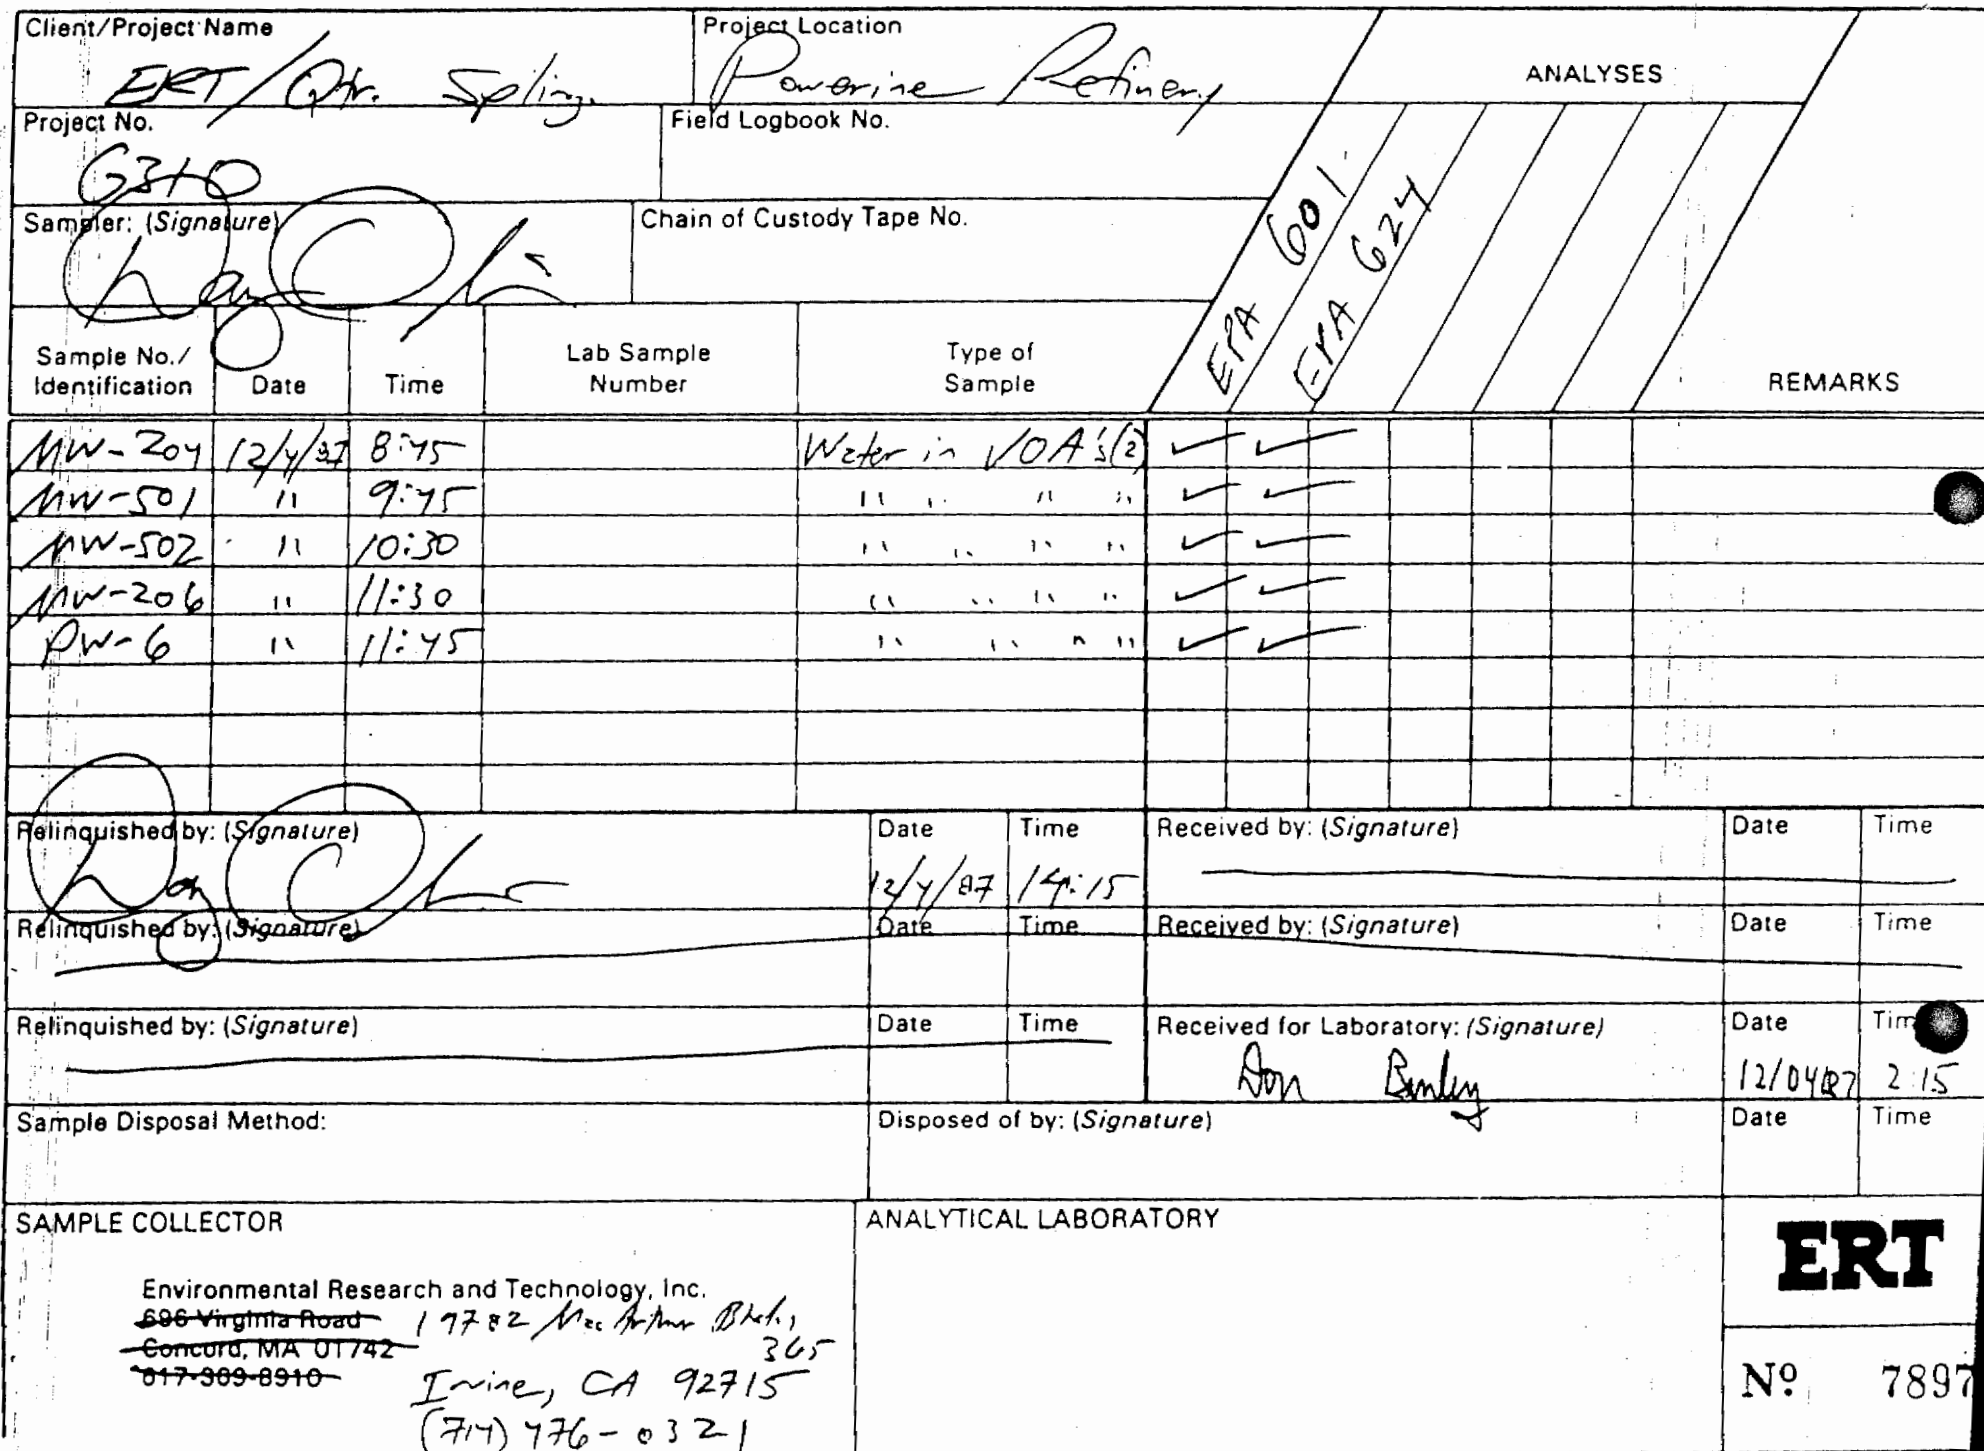 Client/Project Name
ERT/Qtr. Spling.
Project Location
Powerine Refinery
ANALYSES
Project No.
G310
Field Logbook No.
Sampler: (Signature)
Chain of Custody Tape No.
EPA 601
EPA 624
Sample No./ Identification
Date
Time
Lab Sample Number
Type of Sample
REMARKS
MW-204 12/4/87 8:45 Water in VOA's (2) ✓ ✓
MW-501 " 9:45 " " " " ✓ ✓
MW-502 " 10:30 " " " " ✓ ✓
MW-206 " 11:30 " " " " ✓ ✓
PW-6 " 11:45 " " " " ✓ ✓
Relinquished by: (Signature)
Date
12/4/87
Time
14:15
Received by: (Signature)
Date
Time
Relinquished by: (Signature)
Date
Time
Received by: (Signature)
Date
Time
Relinquished by: (Signature)
Date
Time
Received for Laboratory: (Signature)
Don
Date
12/04/87
Time
2:15
Sample Disposal Method:
Disposed of by: (Signature)
Date
Time
SAMPLE COLLECTOR
Environmental Research and Technology, Inc.
696 Virginia Road
Concord, MA 01742
617-369-8910
19782 Mac Arthur Blvd.,
365
Irvine, CA 92715
(714) 476-0321
ANALYTICAL LABORATORY
ERT
Nº 7897